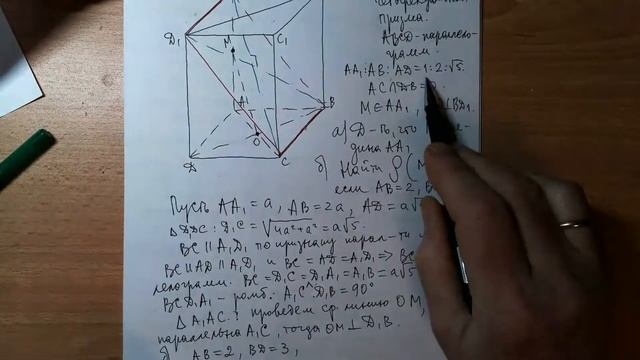 призма.
ABCD-паралле-
грамм.
AA₁:AB:AD=1:2:√5.
AC∩DB=
M∈AA₁, ⊥BD₁.
а) D-ть, что
дина AA₁
б) Найти ρ(M
если AB=2, B
D₁
M
C₁
A
B
O
D
C
Пусть AA₁=a, AB=2a, AD=a√
△D₁DC: D₁C=√4a²+a²=a√5.
BC∥A₁D₁ по признаку парал-ти
BC∥AD∥A₁D₁ и BC=AD=A₁D₁ ⇒
лелограмм. BC=D₁C=D₁A₁=A₁B=a√5
BCD₁A₁-ромб. A₁C^D₁B=90°
△A₁AC: проведём ср. линию OM,
параллельна A₁C, тогда OM⊥D₁B.
AB=2, BD=3,